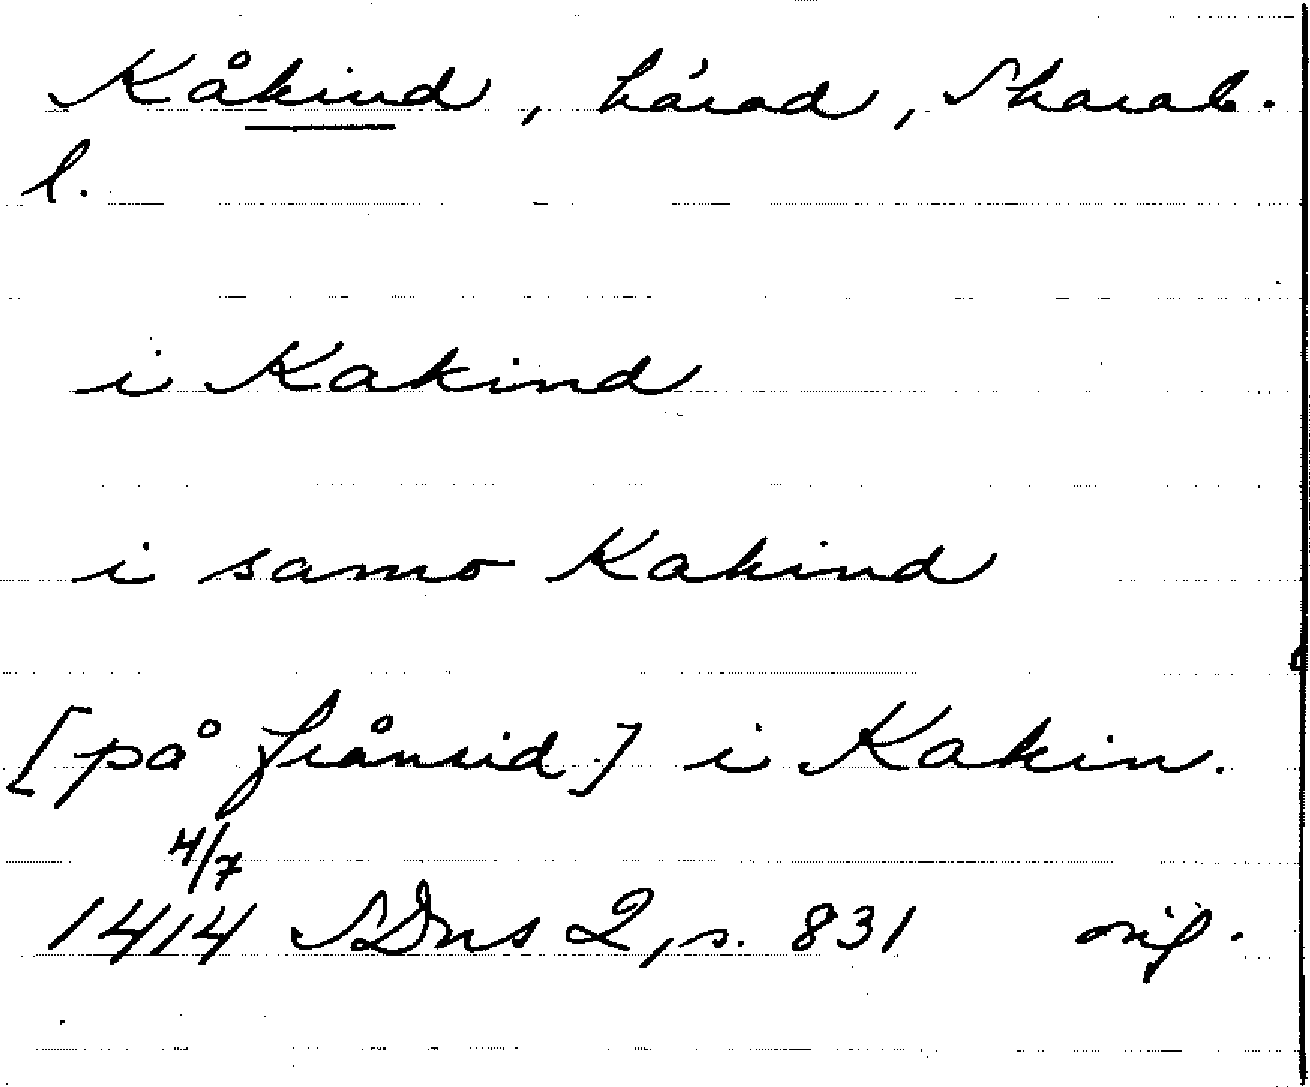 Kåkind, härad, Skarab.
l.
i Kakind
i samo Kakind
[på frånsid.] i Kakin.
4/7
1414 SDns 2, s. 831 orig.